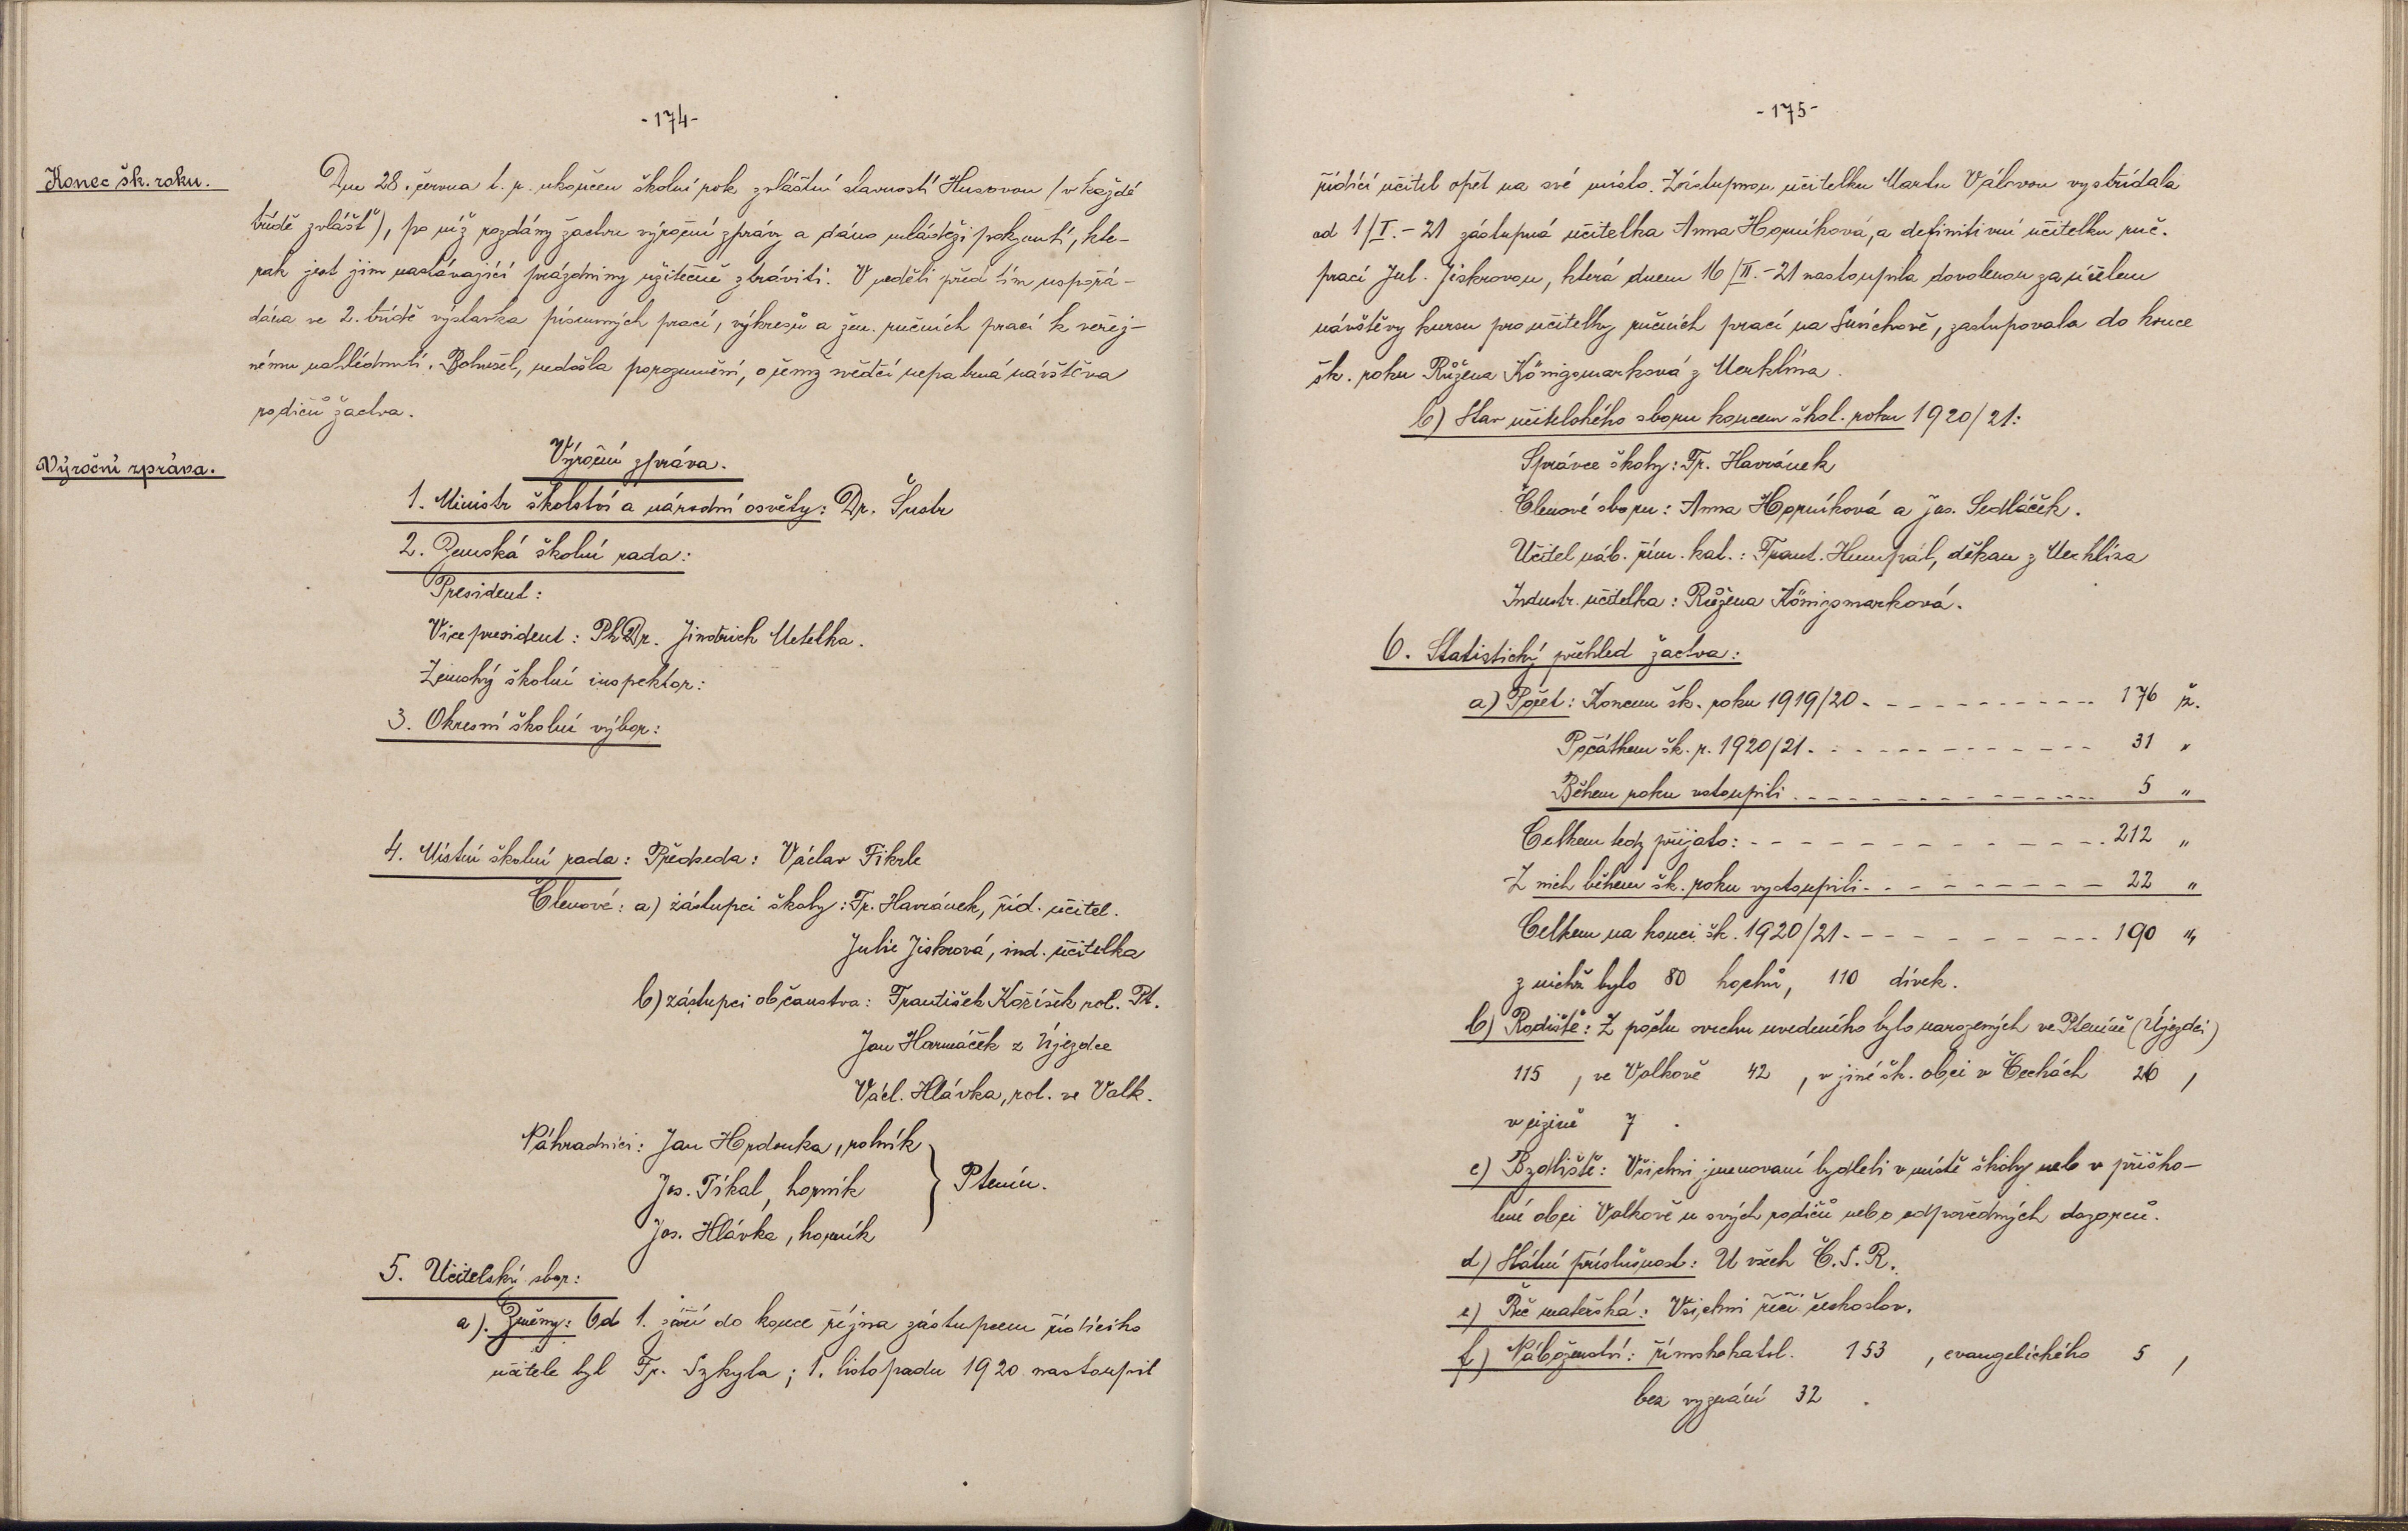 -174-
Konec šk. roku.
Dne 28. června t. r. ukončen školní rok zvláštní slavností Husovou (v každé
třídě zvlášť), po níž rozdány žactvu výroční zprávy a dáno mládeži pokynutí, kte-
rak jest jim nastávající prázdniny užitečně stráviti. V neděli před tím uspořá-
dána ve 2. třídě výstavka písemných prací, výkresů a žen. ručních prací k veřej-
nému nahlédnutí. Bohužel, nedošla porozumění, o čemž svědčí nepatrná návštěva
rodičů žactva.
Výroční zpráva.
Výroční zpráva.
1. Ministr školství a národní osvěty: Dr. Šustr
2. Zemská školní rada:
President:
Vicepresident: PhDr. Jindřich Metelka.
Zemský školní inspektor:
3. Okresní školní výbor:
4. Místní školní rada: Předseda: Václav Fikrle
Členové: a) zástupci školy: Fr. Havránek, říd. učitel.
Julie Jiskrová, ind. učitelka
b) zástupci občanstva: František Kožíšek rol. Pt.
Jan Harmáček z Újezdce
Václ. Hlávka, rol. ve Valk.
Náhradníci: Jan Hrdonka, rolník
Jos. Tikal, horník } Ptenín.
Jos. Hlávka, horník
5. Učitelský sbor:
a). Změny: Od 1. září do konce října zástupcem řídícího
učitele byl Fr. Szkyla; 1. listopadu 1920 nastoupil
-175-
řídící učitel opět na své místo. Zástupnou učitelku Martu Válovou vystřídala
od 1/I.-21 zástupná učitelka Anna Horníková, a definitivní učitelku ruč.
prací Jul. Jiskrovou, která dnem 16/II.-21 nastoupila dovolenou za účelem
návštěvy kursu pro učitelky ručních prací na Smíchově, zastupovala do konce
šk. roku Růžena Königsmarková z Merklína.
b) Stav učitelského sboru koncem škol. roku 1920/21:
Správce školy: Fr. Havránek
Členové sboru: Anna Horníková a Jos. Sedláček.
Učitel náb. řím. kat.: Frant. Humpál, děkan z Merklína
Industr. učitelka: Růžena Königsmarková.
6. Statistický přehled žactva:
a) Počet: Koncem šk. roku 1919/20 - - - - - - - - - - - 176 ž.
Počátkem šk. r. 1920/21 - - - - - - - - - - - - - 31 "
Během roku vstoupili - - - - - - - - - - - - - - 5 "
Celkem tedy přijato: - - - - - - - - - - - - - - 212 "
Z nich během šk. roku vystoupili - - - - - - - - - - 22 "
Celkem na konci šk. 1920/21 - - - - - - - - - - 190 "
z nichž bylo 80 hochů, 110 dívek.
b) Rodiště: Z počtu svrchu uvedeného bylo narozených ve Pteníně (Újezdci)
115 , ve Valkově 42 , v jiné šk. obci v Čechách 26 ,
v cizině 7 .
c) Bydliště: Všichni jmenovaní bydleli v místě školy neb v přiško-
lené obci Valkově u svých rodičů nebo odpovědných dozorců.
d) Státní příslušnost: U všech Č.S.R.
e) Řeč mateřská: Všichni řeči českoslov.
f) Náboženství: římskokatol. 153 , evangelického 5 ,
bez vyznání 32 .